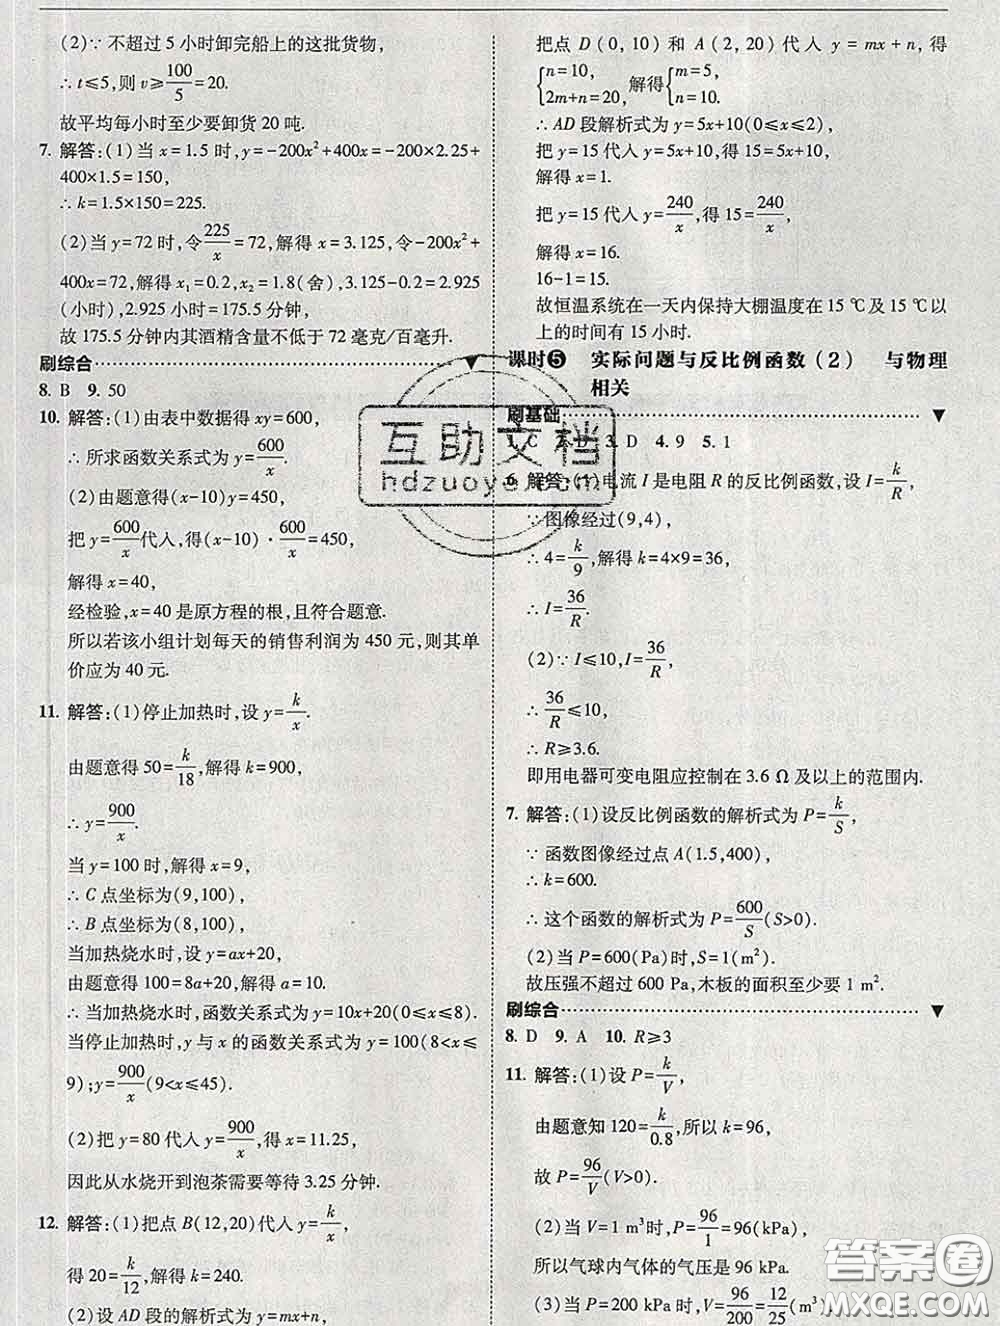 (2)∵ 不超过 5 小时卸完船上的这批货物，
∴ t≤5，则 v≥100/5=20.
故平均每小时至少要卸货 20 吨.
7. 解答：(1)当 x=1.5 时，y=-200x²+400x=-200×2.25+
400×1.5=150，
∴ k=1.5×150=225.
(2)当 y=72 时，令225/x=72，解得 x=3.125，令-200x²+
400x=72，解得 x₁=0.2，x₂=1.8(舍)，3.125-0.2=2.925
(小时)，2.925 小时=175.5 分钟，
故 175.5 分钟内其酒精含量不低于 72 毫克/百毫升.
刷综合
8. B 9. 50
10. 解答：(1)由表中数据得 xy=600，
∴ 所求函数关系式为 y=600/x.
(2)由题意得(x-10)y=450，
把 y=600/x代入，得(x-10)·600/x=450，
解得 x=40，
经检验，x=40 是原方程的根，且符合题意.
所以若该小组计划每天的销售利润为 450 元，则其单
价应为 40 元.
11. 解答：(1)停止加热时，设 y=k/x.
由题意得 50=k/18，解得 k=900，
∴ y=900/x.
当 y=100 时，解得 x=9，
∴ C 点坐标为(9,100)，
∴ B 点坐标为(8,100)，
当加热烧水时，设 y=ax+20，
由题意得 100=8a+20，解得 a=10.
∴ 当加热烧水时，函数关系式为 y=10x+20(0≤x≤8).
当停止加热时，y 与 x 的函数关系式为 y=100(8<x≤
9)；y=900/x(9<x≤45).
(2)把 y=80 代入 y=900/x，得 x=11.25，
因此从水烧开到泡茶需要等待 3.25 分钟.
12. 解答：(1)把点 B(12,20)代入 y=k/x，
得 20=k/12，解得 k=240.
(2)设 AD 段的解析式为 y=mx+n，
把点 D(0,10)和 A(2,20)代入 y=mx+n，得
{n=10, 2m+n=20, 解得{m=5, n=10.
∴ AD 段解析式为 y=5x+10(0≤x≤2)，
把 y=15 代入 y=5x+10，得 15=5x+10，
解得 x=1.
把 y=15 代入 y=240/x，得 15=240/x，
解得 x=16.
16-1=15.
故恒温系统在一天内保持大棚温度在 15 ℃及 15 ℃以
上的时间有 15 小时.
课时❺ 实际问题与反比例函数(2) 与物理
相关
刷基础
1. C 2. D 3. D 4. 9 5. 1
6. 解答：(1)电流 I 是电阻 R 的反比例函数，设 I=k/R，
∵ 图像经过(9,4)，
∴ 4=k/9，解得 k=4×9=36，
∴ I=36/R.
(2)∵ I≤10，I=36/R，
∴ 36/R≤10，
∴ R≥3.6.
即用电器可变电阻应控制在 3.6 Ω 及以上的范围内.
7. 解答：(1)设反比例函数的解析式为 P=k/S，
∵ 函数图像经过点 A(1.5,400)，
∴ k=600.
∴ 这个函数的解析式为 P=600/S(S>0).
(2)当 P=600(Pa)时，S=1(m²).
故压强不超过 600 Pa，木板的面积至少要 1 m².
刷综合
8. D 9. A 10. R≥3
11. 解答：(1)设 P=k/V，
由题意知 120=k/0.8，所以 k=96，
故 P=96/V(V>0).
(2)当 V=1 m³时，P=96/1=96(kPa)，
所以气球内气体的气压是 96 kPa.
(3)当 P=200 kPa时，V=96/200=12/25(m³)
互助文档
hdzuoye.com
答案圈
MXQE.COM